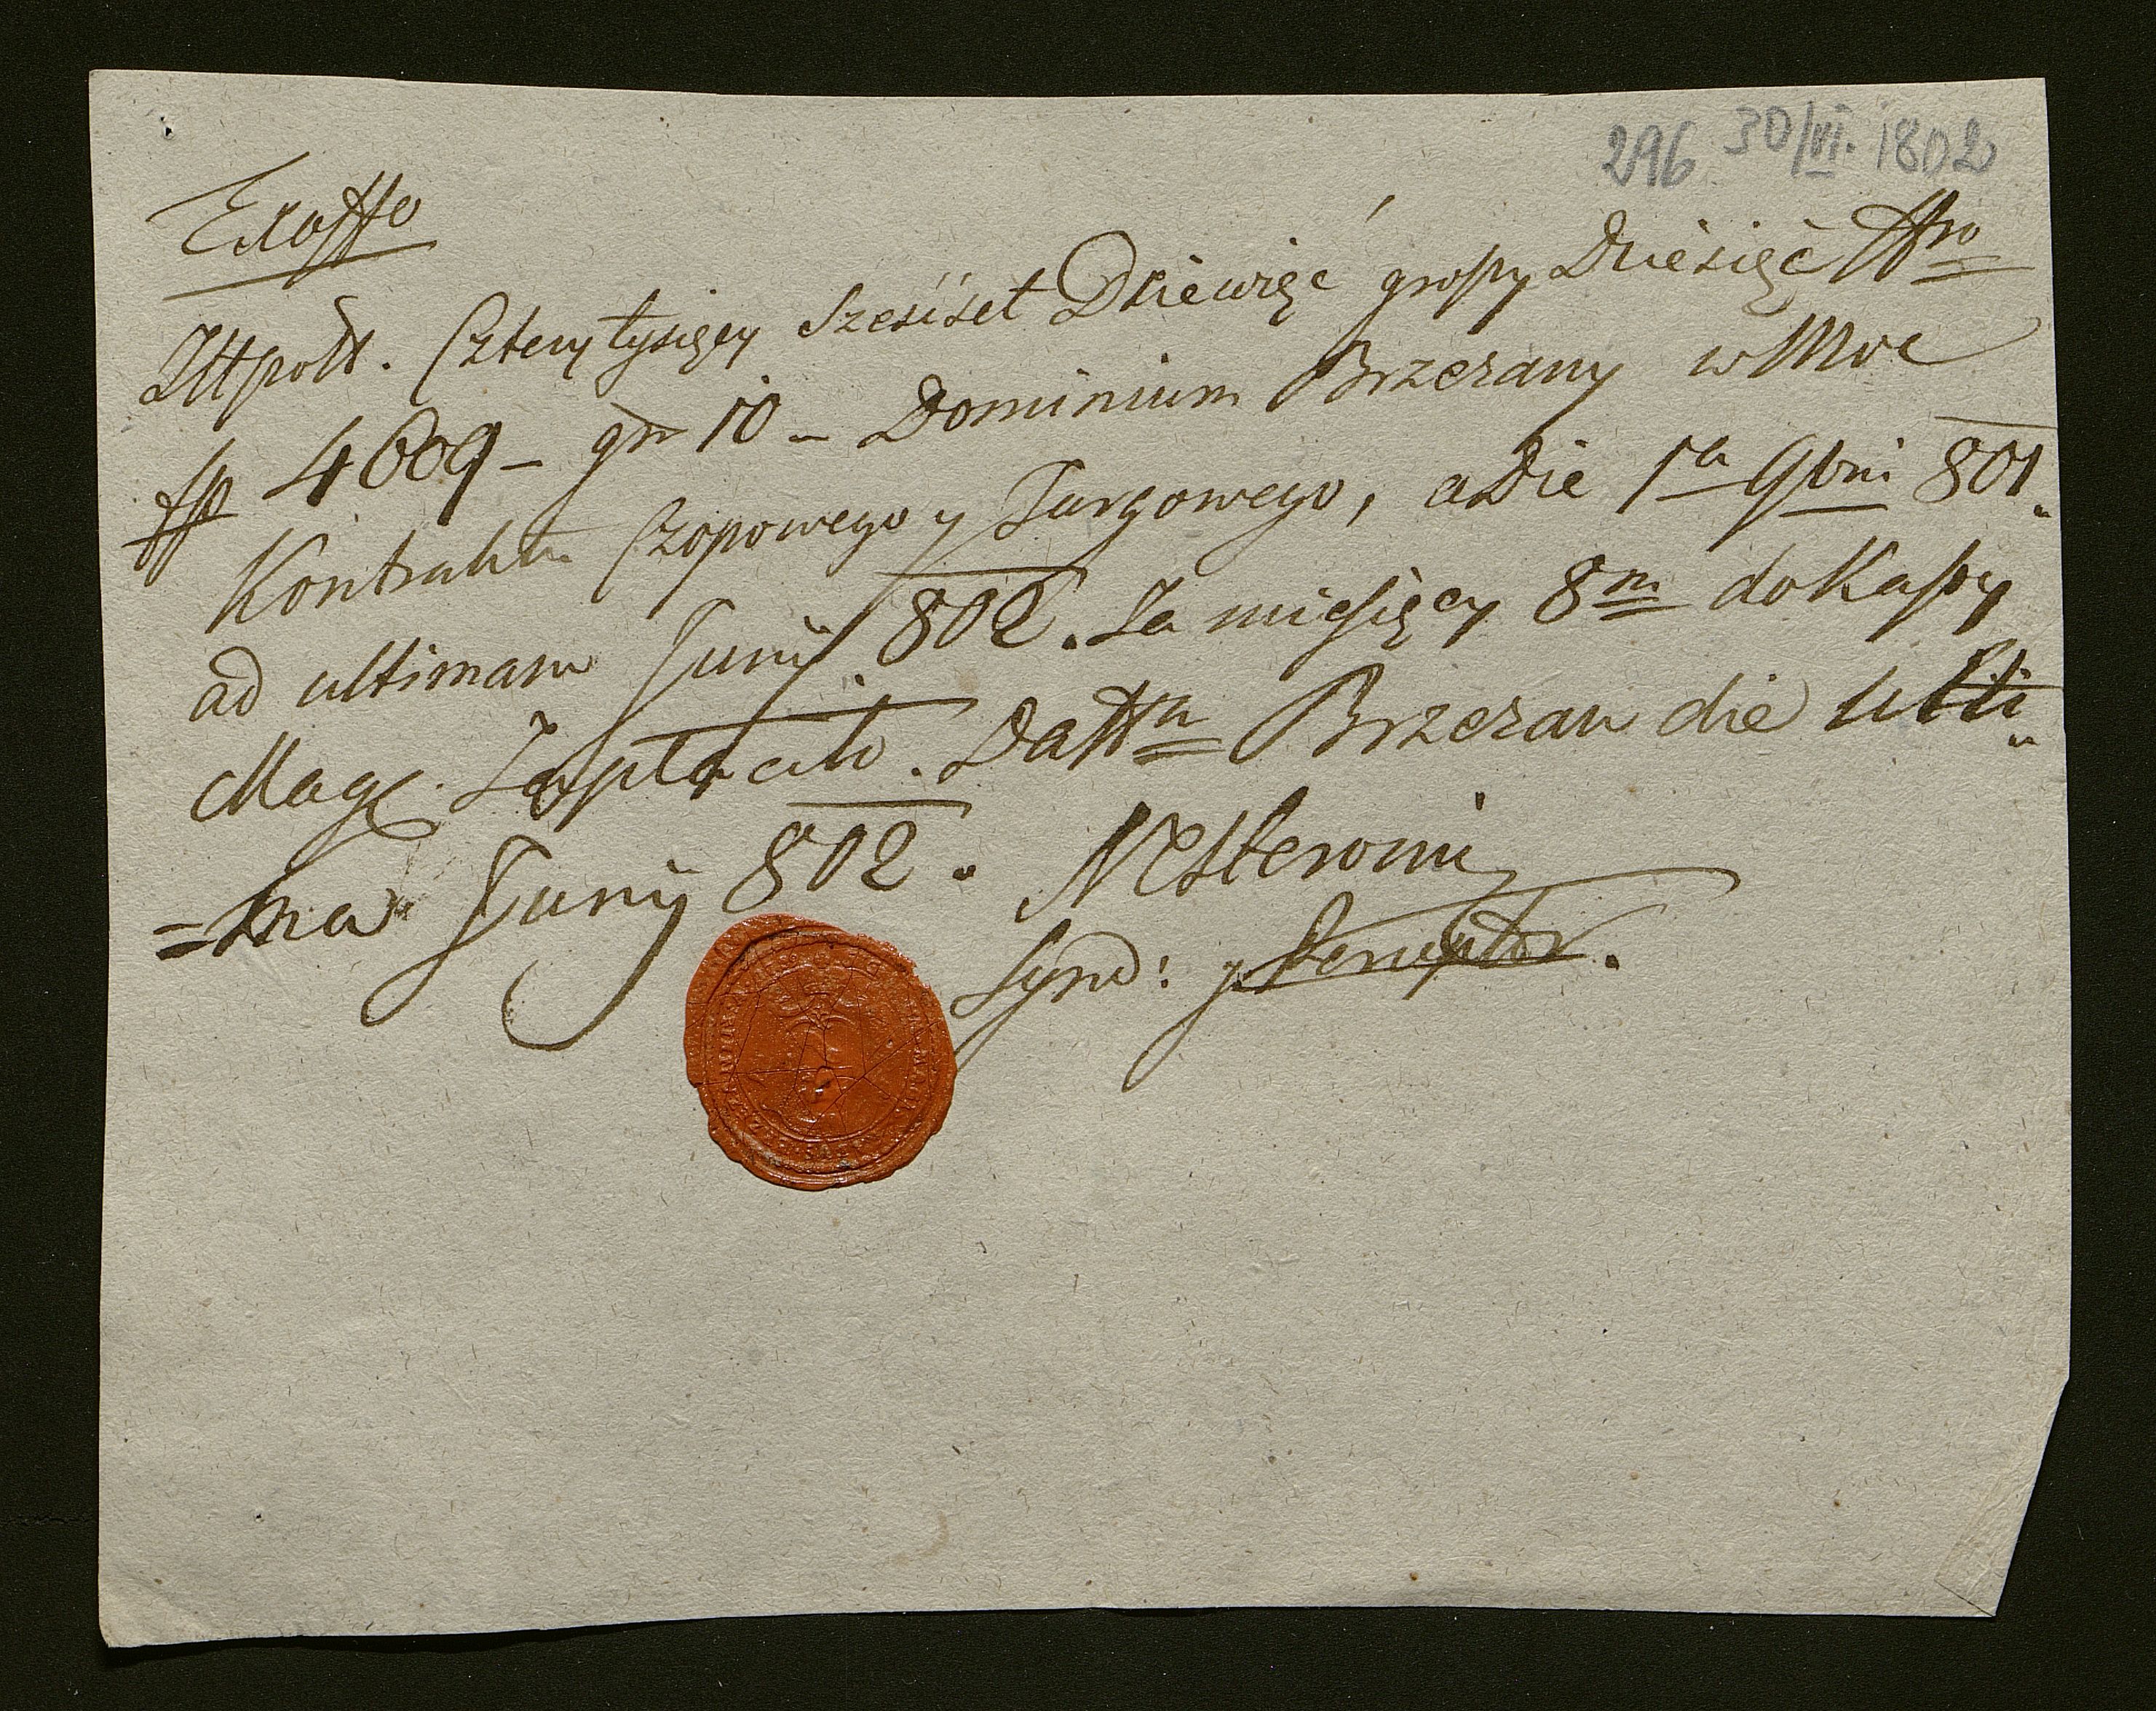 296 30/VI. 1802
Exoffo
Złłpolt. Cztery tysięcy Sześćset Dziewięć groszy Dziesięć Nro
ffp 4609 - gr 10 - Dominium Brzezany w Moc
Kontraktu Czopowego y Targowego, a Die 1a 9bri 801.
ad ultimam Junij 802. Za miesięcy 8m do Kassy
Mag. Zapłaciło. Datta Brzezan die ulti
=ma Junij 802. Nesterowi
Synd: y Perceptor.